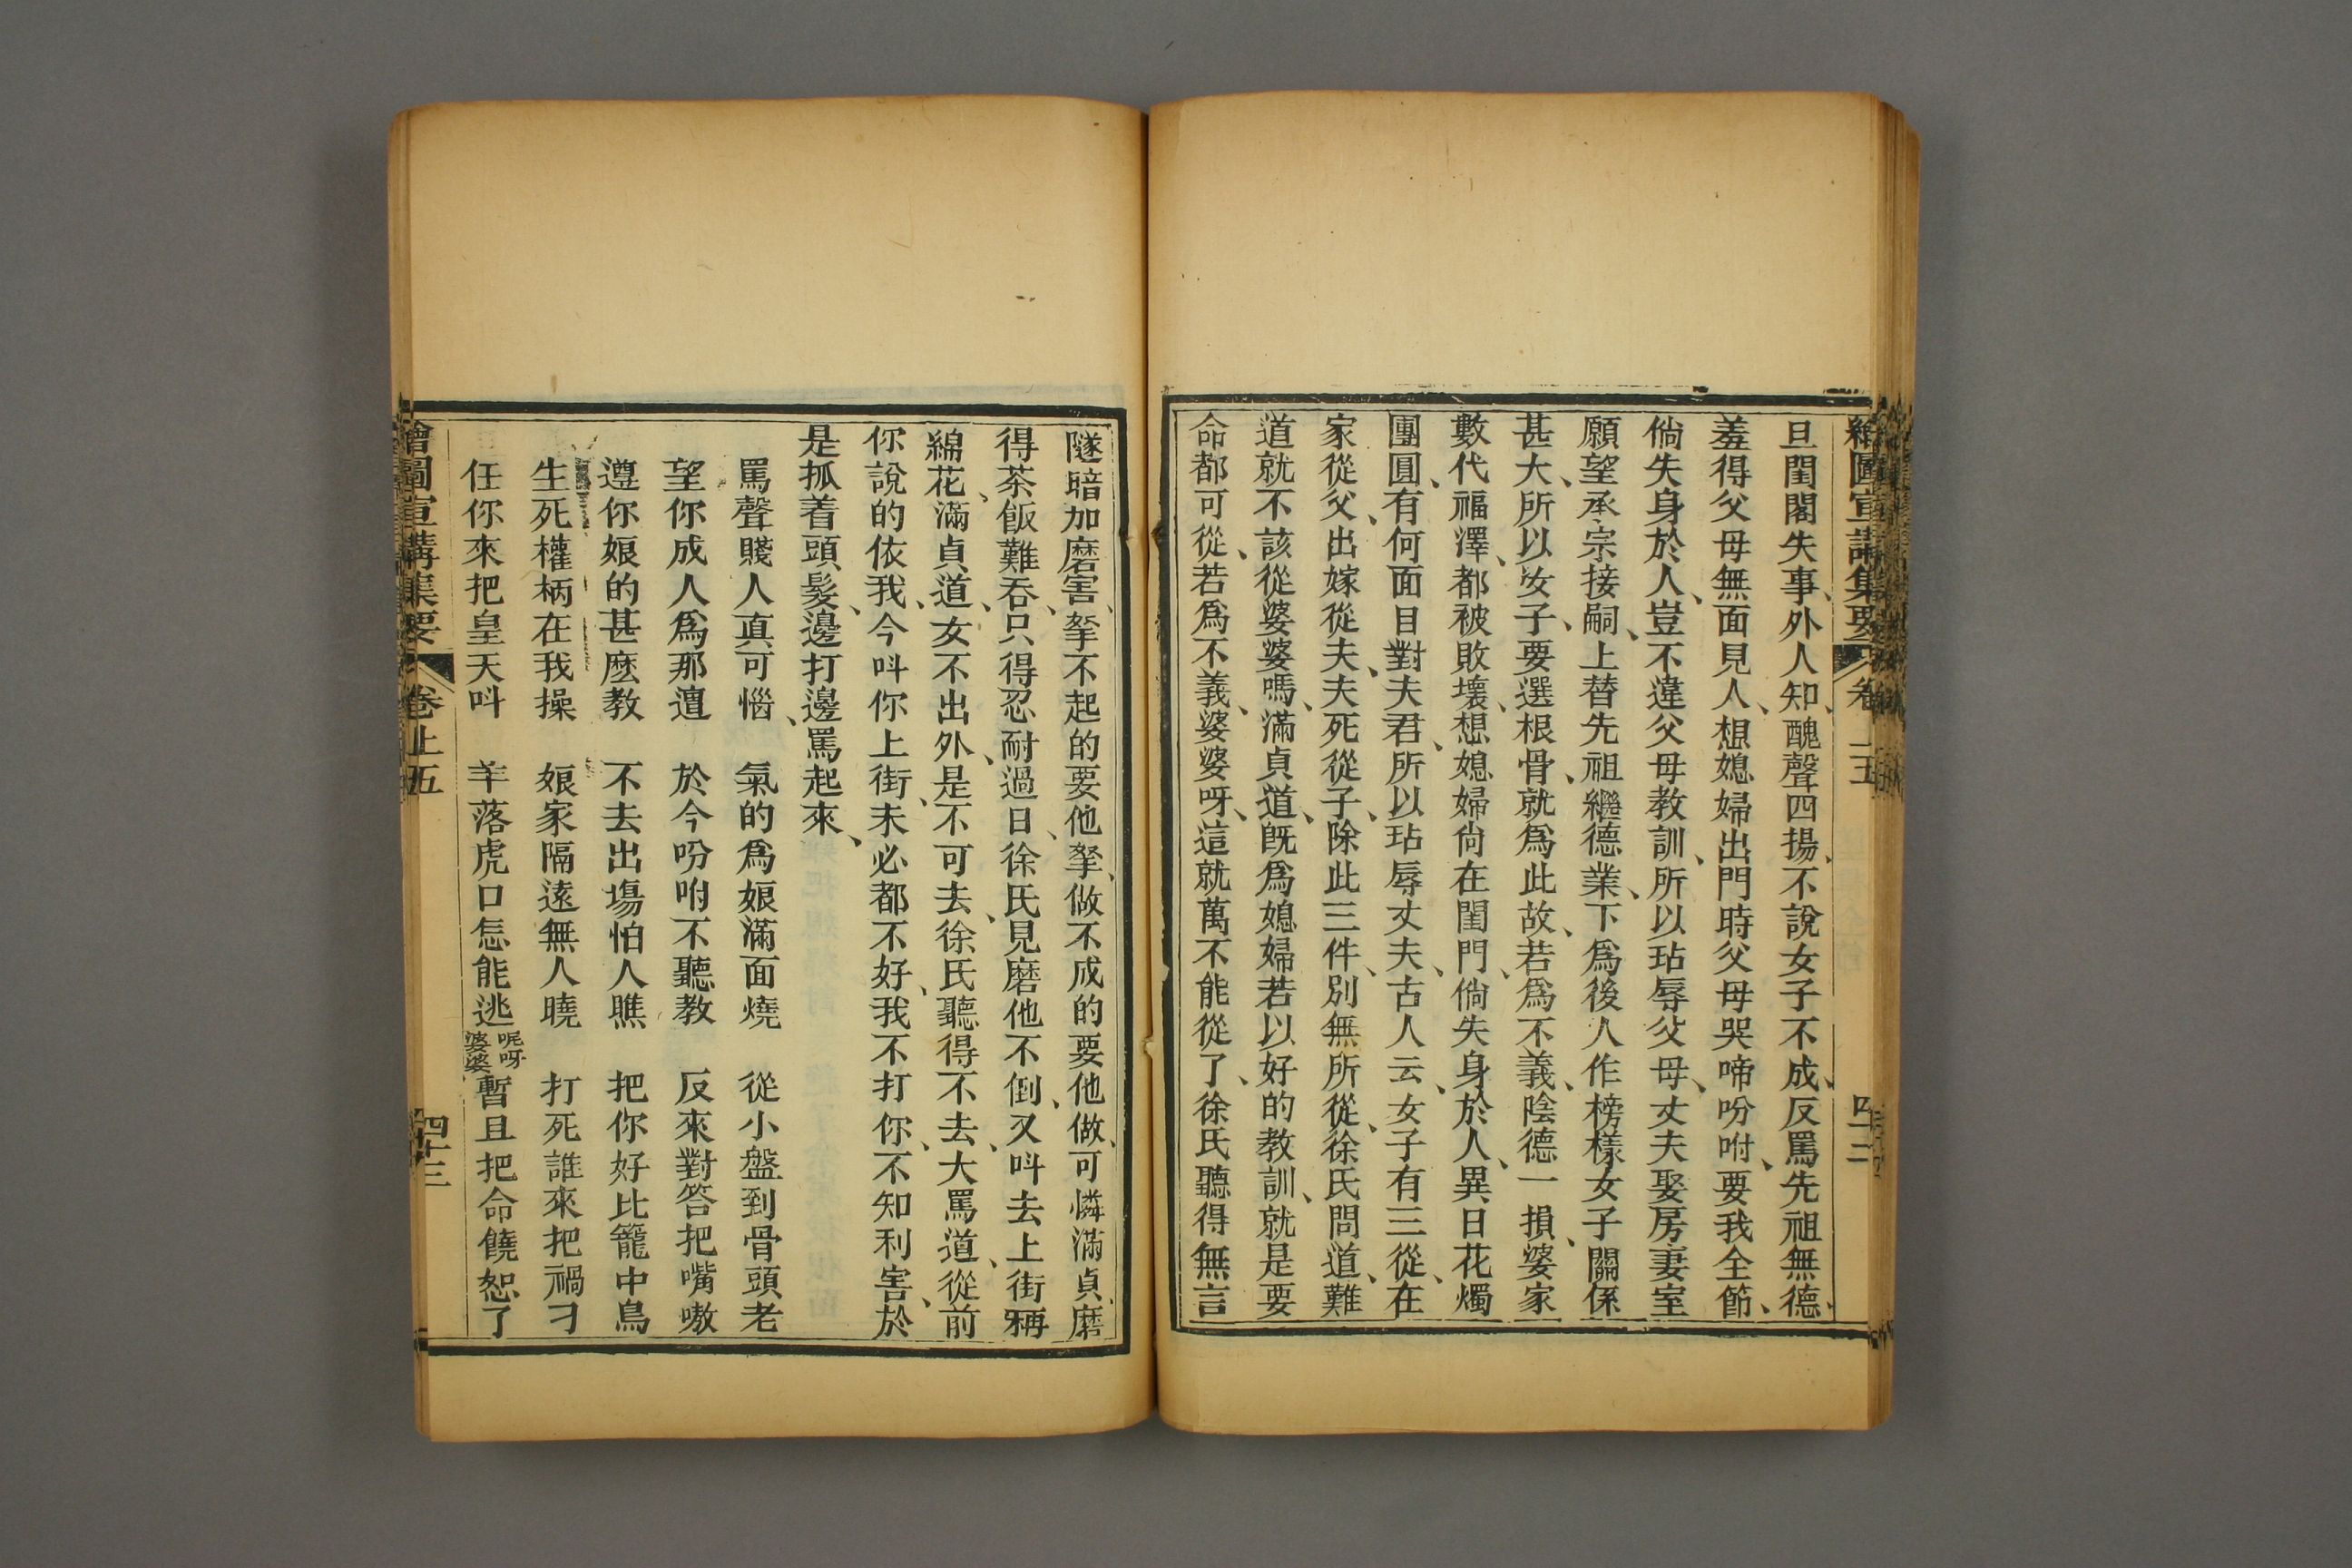 旦閨閣失事、外人知、醜聲四揚、不說女子不成、反罵先祖無德、
羞得父母無面見人、想媳婦出門時父母哭啼吩咐、要我全節、
倘失身於人、豈不違父母教訓、所以玷辱父母、丈夫娶房妻室
願望承宗接嗣、上替先祖繼德業、下為後人作榜樣女子關係
甚大、所以女子、要選根骨、就為此故、若為不義、陰德一損、婆家
數代福澤、都被敗壞、想媳婦尙在閨門、倘失身於人、異日花燭
團圓、有何面目對夫君、所以玷辱丈夫、古人云、女子有三從、在
家從父、出嫁從夫、夫死從子、除此三件、別無所從、徐氏問道、難
道就不該從婆婆嗎、滿貞道、旣為媳婦若以好的教訓、就是要
命都可從、若為不義、婆婆呀、這就萬不能從了、徐氏聽得無言
隧暗加磨害、拏不起的要他拏、做不成的要他做、可憐滿貞、磨
得茶飯難吞、只得忍耐過日、徐氏見磨他不倒、又呌去上街稱
綿花、滿貞道、女不出外、是不可去、徐氏聽得不去、大罵道、從前
你說的依我、今呌你上街、未必都不好、我不打你、不知利害、於
是抓着頭髮、邊打邊罵起來、
罵聲賤人真可惱、氣的為娘滿面燒 從小盤到骨頭老
望你成人為那邅 於今吩咐不聽教 反來對答把嘴嗷
遵你娘的甚麽教 不去出塲怕人瞧 把你好比籠中鳥
生死權柄在我操 娘家隔遠無人曉 打死誰來把禍刁
任你來把皇天呌 羊落虎口怎能逃呢呀婆婆暫且把命饒恕了
繪圖宣講集要 卷上五 四十三